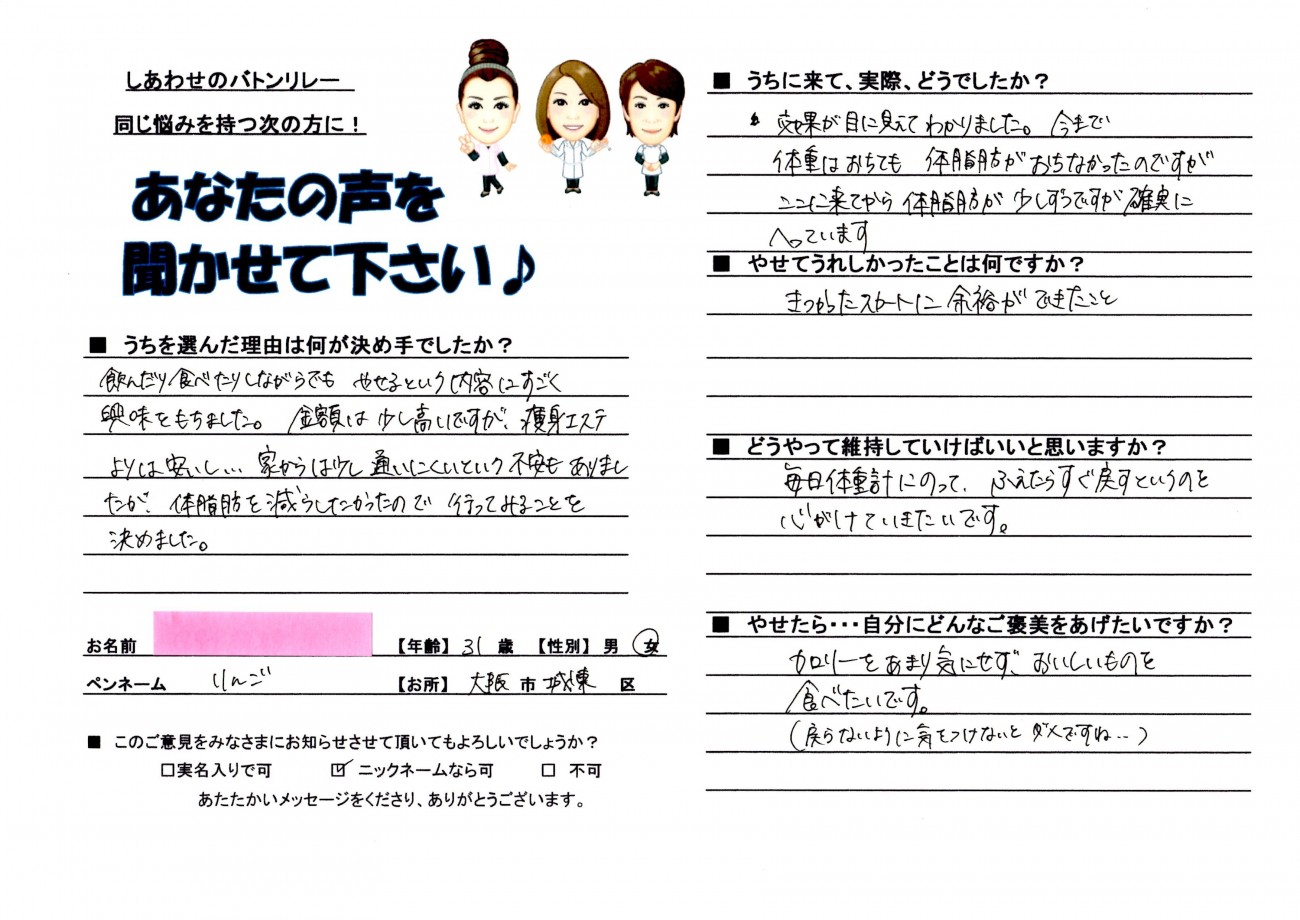 しあわせのバトンリレー
同じ悩みを持つ次の方に！
あなたの声を
聞かせて下さい♪
■ うちを選んだ理由は何が決め手でしたか？
飲んだり食べたりしながらでも やせるという内容にすごく
興味をもちました。 金額は少し高いですが、痩身エステ
よりは安いし… 家からは少し通いにくいという不安もありまし
たが、体脂肪を減らしたかったので 行ってみることを
決めました。
お名前 【年齢】 31 歳 【性別】 男 女
ペンネーム りんご 【お所】 大阪 市 城東 区
■ このご意見をみなさまにお知らせさせて頂いてもよろしいでしょうか？
□実名入りで可 ☑ ニックネームなら可 □ 不可
あたたかいメッセージをくださり、ありがとうございます。
■ うちに来て、実際、どうでしたか？
効果が目に見えてわかりました。 今まで
体重はおちても 体脂肪がおちなかったのですが
ここに来てから 体脂肪が 少しずつですが確実に
へっています
■ やせてうれしかったことは何ですか？
きつかったスカートに 余裕ができたこと
■ どうやって維持していけばいいと思いますか？
毎日体重計にのって、ふえたらすぐ戻すというのを
心がけていきたいです。
■ やせたら・・・自分にどんなご褒美をあげたいですか？
カロリーをあまり気にせず、おいしいものを
食べたいです。
(戻らないように気をつけないと ダメですね…)